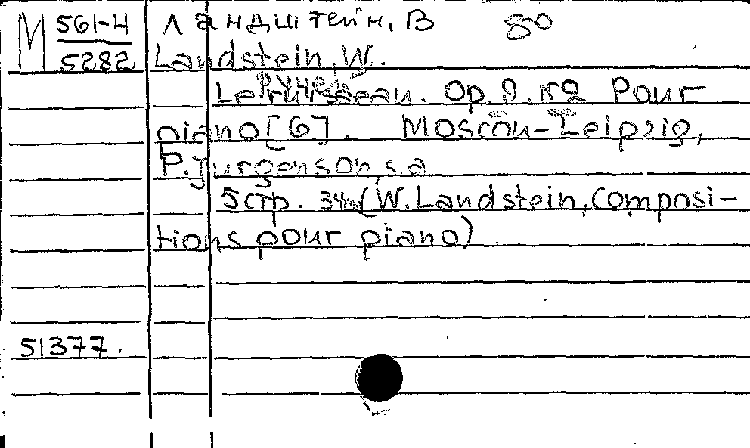 М 561-4 Ландштейн, В 80
5282 Landstein, W.
Le ruisseau. Op. 9. №2 Pour
piano [6]. Moscou-Leipzig,
P. Jurgenson, s.a
5 стр. 34 (W. Landstein, Composi-
tions pour piano)
51377.